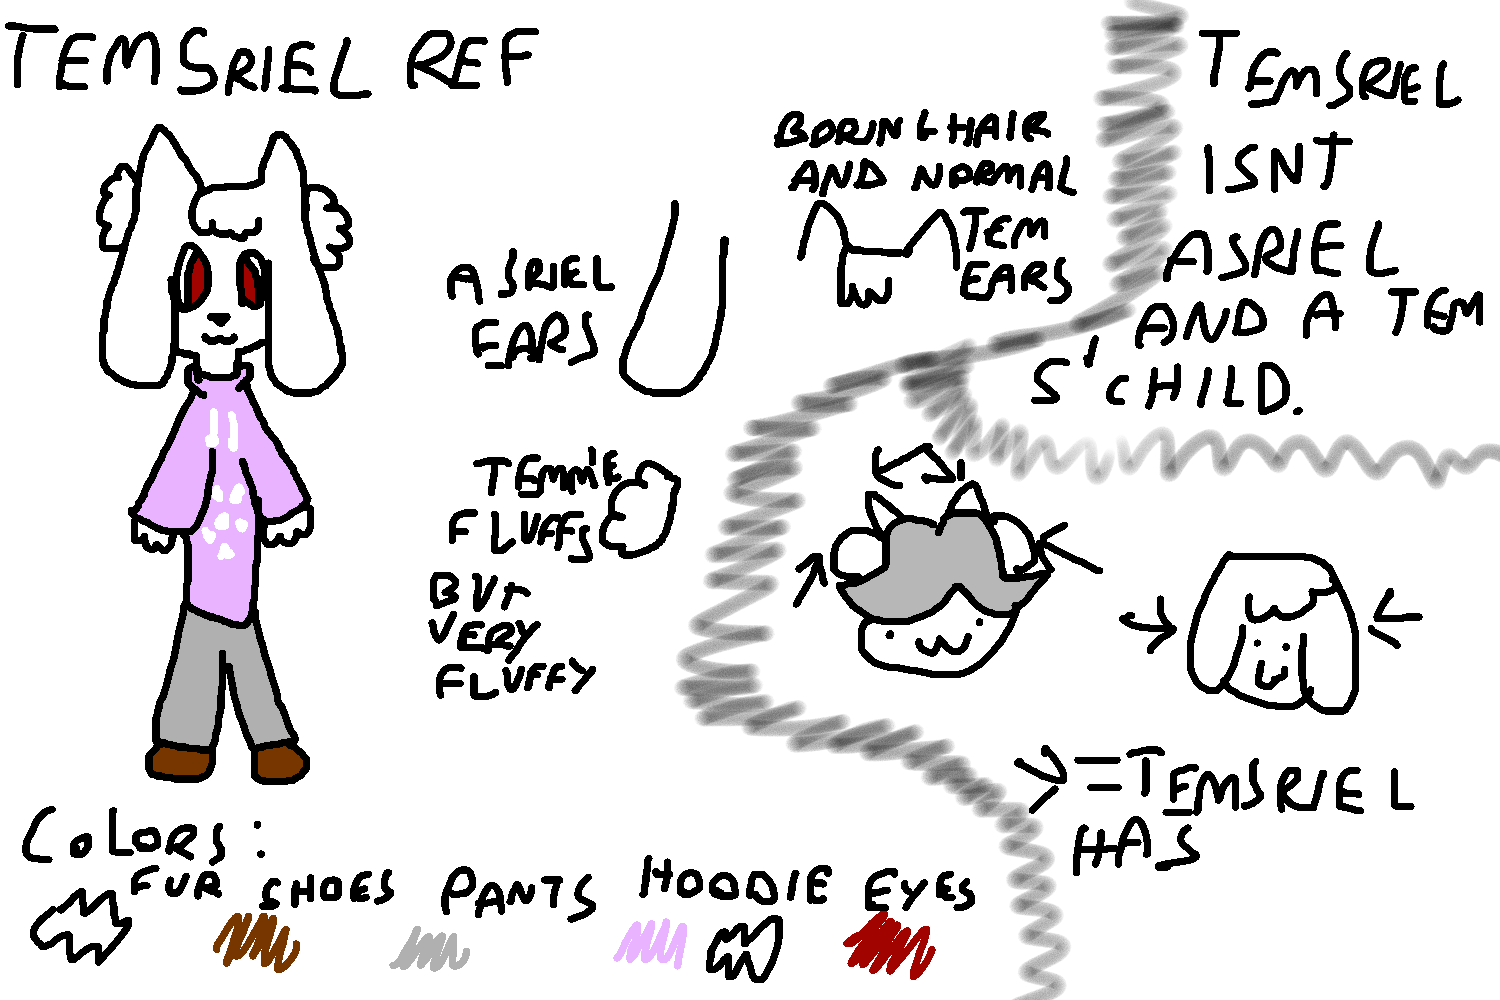 TEMSRIEL REF
ASRIEL
EARS
BORING HAIR
AND NORMAL
TEM
EARS
TEMMIE
FLUFFS
BUT
VERY
FLUFFY
TEMSRIEL
ISNT
ASRIEL
AND A TEM
S' CHILD.
> = TEMSRIEL
HAS
COLORS:
FUR SHOES PANTS HOODIE EYES